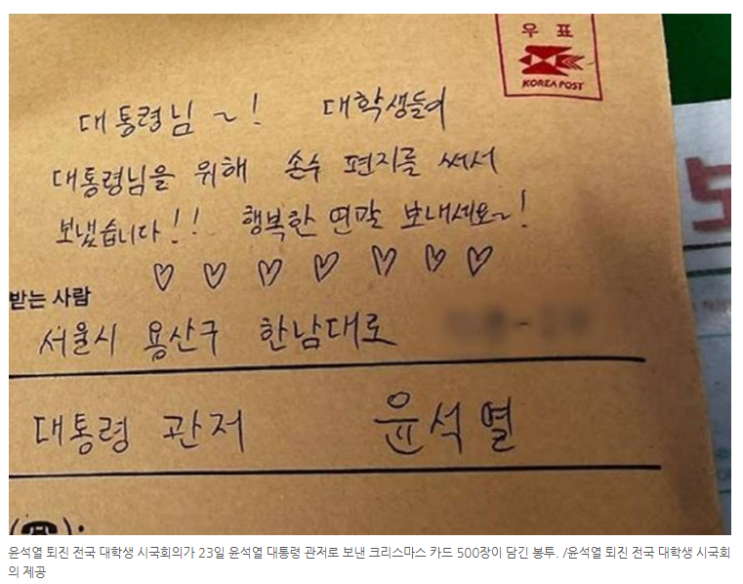 우 표
KOREA POST
대통령님 ~! 대학생들이
대통령님을 위해 손수 편지를 써서
보냈습니다!! 행복한 연말 보내세요~!
♡ ♡ ♡ ♡ ♡ ♡ ♡
받는 사람
서울시 용산구 한남대로
대통령 관저 윤석열
(☎):
윤석열 퇴진 전국 대학생 시국회의가 23일 윤석열 대통령 관저로 보낸 크리스마스 카드 500장이 담긴 봉투. /윤석열 퇴진 전국 대학생 시국회
의 제공